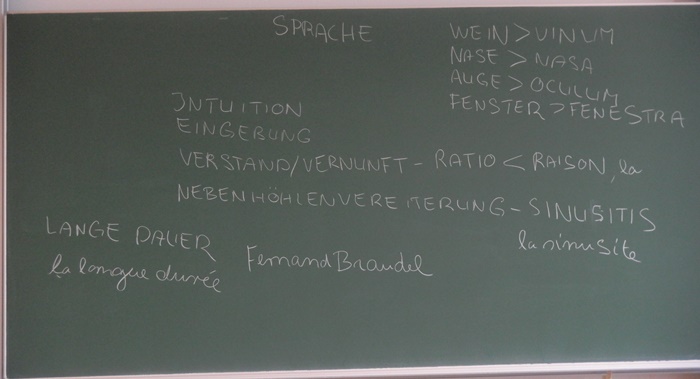 SPRACHE
WEIN > VINUM
NASE > NASA
AUGE > OCULUM
FENSTER > FENESTRA
INTUITION
EINGEBUNG
VERSTAND/VERNUNFT - RATIO < RAISON, la
NEBENHÖHLENVEREITERUNG - SINUSITIS
la sinusite
LANGE DAUER
la longue durée
Fernand Braudel